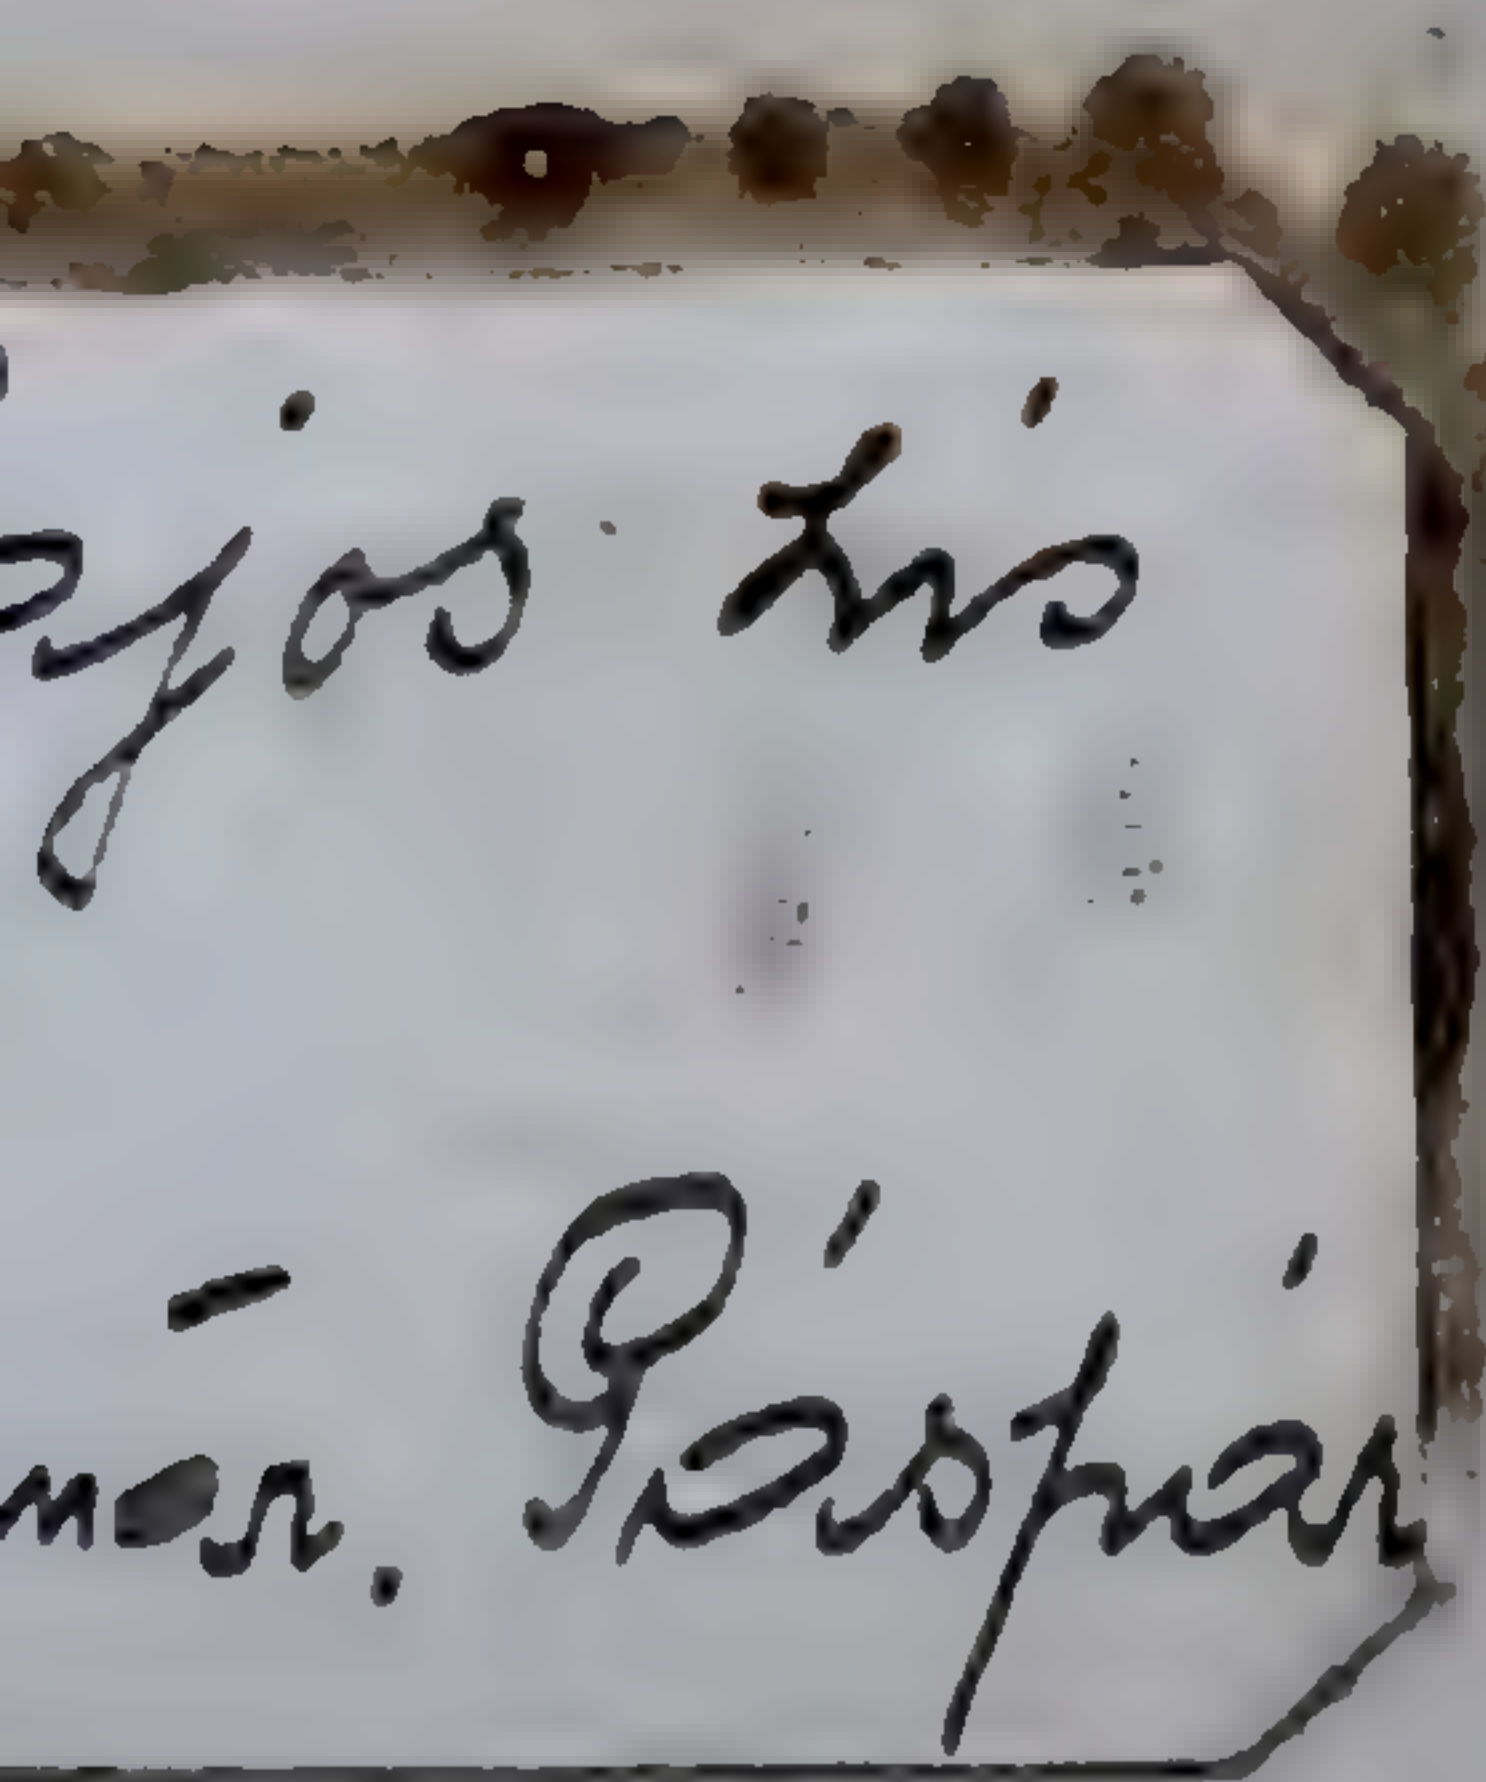 ajos kis
Gáspár